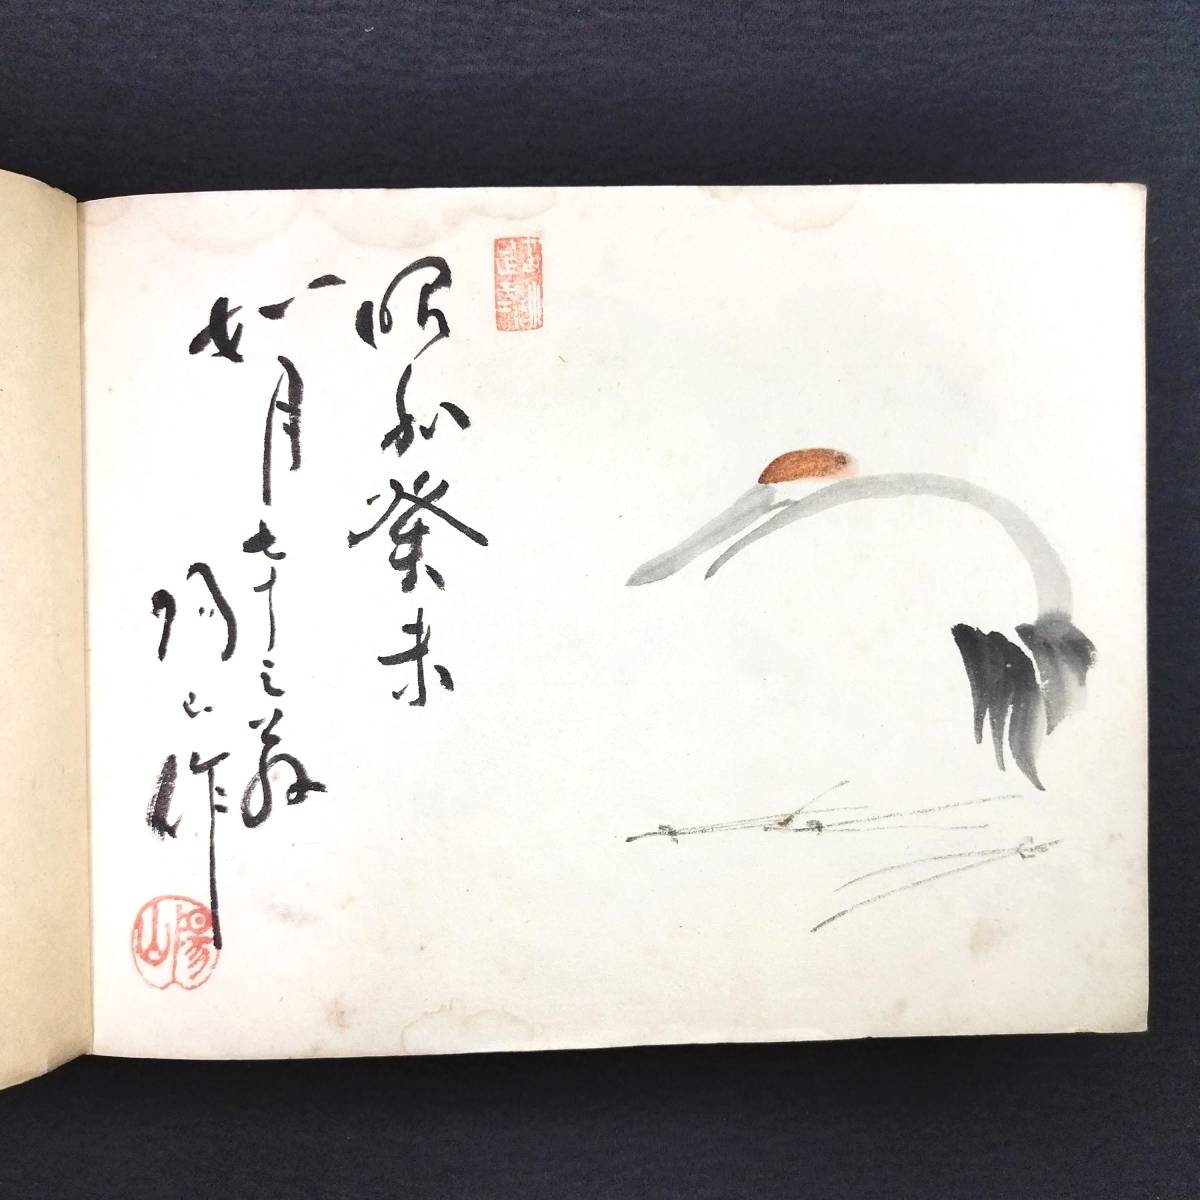 昭和癸未
如月七十三翁
陽山作
陽山